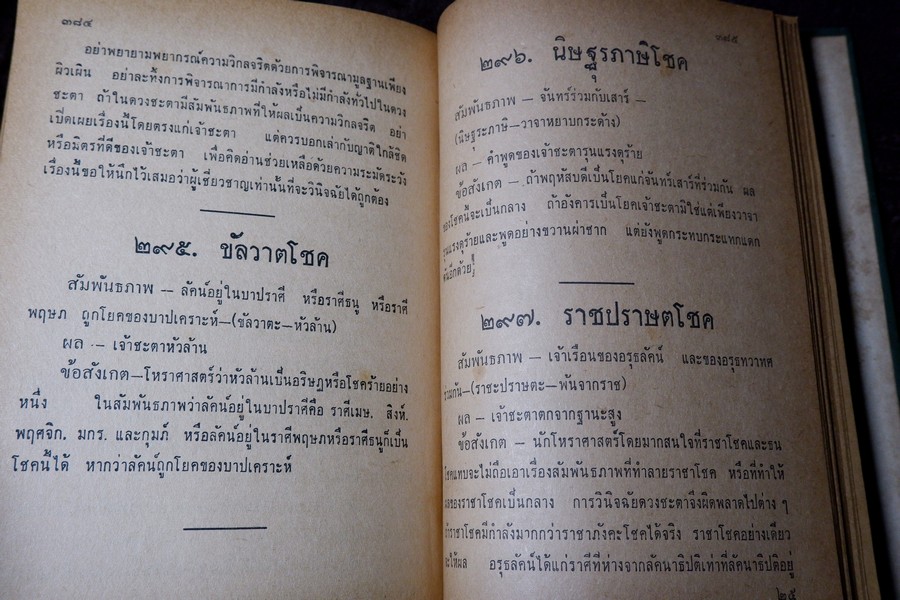 ๓๘๔
อย่าพยายามพยากรณ์ความวิกลจริตด้วยการพิจารณามูลฐานเพียง
ผิวเผิน อย่าละทิ้งการพิจารณาการมีกำลังหรือไม่มีกำลังทั่วไปในดวง
ชะตา ถ้าในดวงชะตามีสัมพันธภาพที่ให้ผลเป็นความวิกลจริต อย่า
เปิดเผยเรื่องนี้โดยตรงแก่เจ้าชะตา แต่ควรบอกเล่ากับญาติใกล้ชิด
หรือมิตรที่ดีของเจ้าชะตา เพื่อคิดอ่านช่วยเหลือด้วยความระมัดระวัง
เรื่องนี้ขอให้นึกไว้เสมอว่าผู้เชี่ยวชาญเท่านั้นที่จะวินิจฉัยได้ถูกต้อง
๒๙๕. ขัลวาตโชค
สัมพันธภาพ – ลัคน์อยู่ในบาปราศี หรือราศีธนู หรือราศี
พฤษภ ถูกโยคของบาปเคราะห์–(ขัลวาตะ–หัวล้าน)
ผล – เจ้าชะตาหัวล้าน
ข้อสังเกต–โหราศาสตร์ว่าหัวล้านเป็นอริษฎหรือโชคร้ายอย่าง
หนึ่ง ในสัมพันธภาพว่าลัคน์อยู่ในบาปราศีคือ ราศีเมษ. สิงห์.
พฤศจิก. มกร. และกุมภ์ หรือลัคน์อยู่ในราศีพฤษภหรือราศีธนูก็เป็น
โชคนี้ได้ หากว่าลัคน์ถูกโยคของบาปเคราะห์
๓๘๕
๒๙๖. นิษฐุรภาษิโชค
สัมพันธภาพ – จันทร์ร่วมกับเสาร์ –
(นิษฐุระภาษิ–วาจาหยาบกระด้าง)
ผล – คำพูดของเจ้าชะตารุนแรงดุร้าย
ข้อสังเกต – ถ้าพฤหัสบดีเป็นโยคแก่จันทร์เสาร์ที่ร่วมกัน ผล
ของโชคนี้จะเป็นกลาง ถ้าอังคารเป็นโยคเจ้าชะตามิใช่แต่เพียงวาจา
รุนแรงดุร้ายและพูดอย่างขวานผ่าซาก แต่ยังพูดกระทบกระแทกแดก
ดันอีกด้วย
๒๙๗. ราชปราษตโชค
สัมพันธภาพ – เจ้าเรือนของอรุธลัคน์ และของอรุธทวาทศ
ร่วมกัน–(ราชะปราษตะ–พ้นจากราช)
ผล – เจ้าชะตาตกจากฐานะสูง
ข้อสังเกต – นักโหราศาสตร์โดยมากสนใจที่ราชาโชคและธน
โชคแทบจะไม่ถือเอาเรื่องสัมพันธภาพที่ทำลายราชาโชค หรือที่ทำให้
ผลของราชาโชคเป็นกลาง การวินิจฉัยดวงชะตาจึงผิดพลาดไปต่าง ๆ
ถ้าราชาโชคมีกำลังมากกว่าราชาภังคะโชคได้จริง ราชาโชคอย่างเดียว
จะให้ผล อรุธลัคน์ได้แก่ราศีที่ห่างจากลัคนาธิปติเท่าที่ลัคนาธิปติอยู่
๒๕